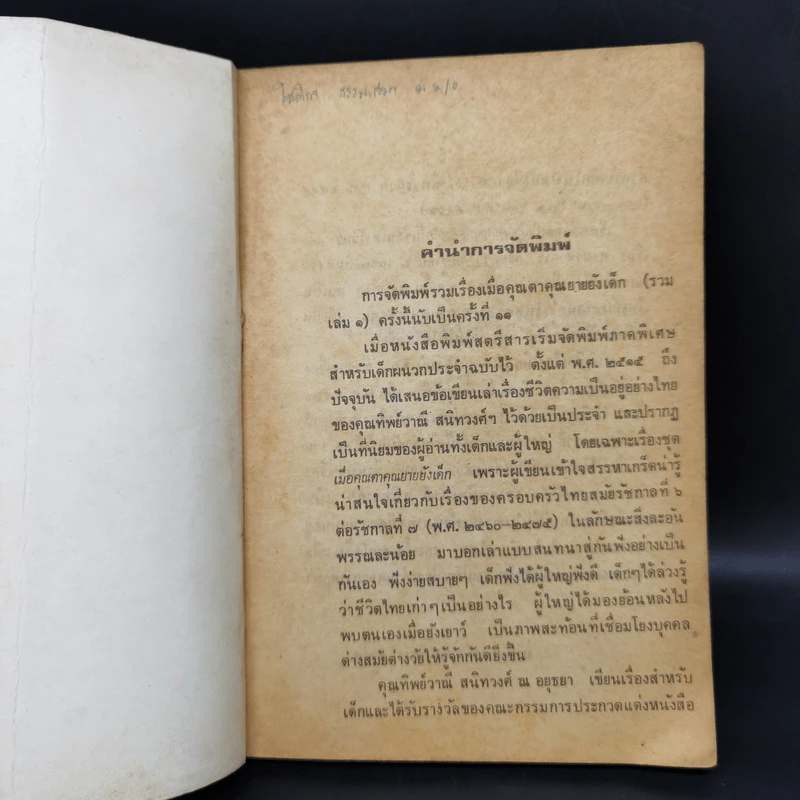 คำนำการจัดพิมพ์
การจัดพิมพ์รวมเรื่องเมื่อคุณตาคุณยายยังเด็ก (รวม
เล่ม ๑) ครั้งนี้นับเป็นครั้งที่ ๑๑
เมื่อหนังสือพิมพ์สตรีสารเริ่มจัดพิมพ์ภาคพิเศษ
สำหรับเด็กผนวกประจำฉบับไว้ ตั้งแต่ พ.ศ. ๒๕๑๕ ถึง
ปัจจุบัน ได้เสนอข้อเขียนเล่าเรื่องชีวิตความเป็นอยู่อย่างไทย
ของคุณทิพย์วาณี สนิทวงศ์ฯ ไว้ด้วยเป็นประจำ และปรากฏ
เป็นที่นิยมของผู้อ่านทั้งเด็กและผู้ใหญ่ โดยเฉพาะเรื่องชุด
เมื่อคุณตาคุณยายยังเด็ก เพราะผู้เขียนเข้าใจสรรหาเกร็ดน่ารู้
น่าสนใจเกี่ยวกับเรื่องของครอบครัวไทยสมัยรัชกาลที่ ๖
ต่อรัชกาลที่ ๗ (พ.ศ. ๒๔๖๐–๒๔๗๕) ในลักษณะสิ่งละอัน
พรรณละน้อย มาบอกเล่าแบบสนทนาสู่กันฟังอย่างเป็น
กันเอง ฟังง่ายสบายๆ เด็กฟังได้ผู้ใหญ่ฟังดี เด็กๆได้ล่วงรู้
ว่าชีวิตไทยเก่าๆเป็นอย่างไร ผู้ใหญ่ได้มองย้อนหลังไป
พบตนเองเมื่อยังเยาว์ เป็นภาพสะท้อนที่เชื่อมโยงบุคคล
ต่างสมัยต่างวัยให้รู้จักกันดียิ่งขึ้น
คุณทิพย์วาณี สนิทวงศ์ ณ อยุธยา เขียนเรื่องสำหรับ
เด็กและได้รับรางวัลของคณะกรรมการประกวดแต่งหนังสือ